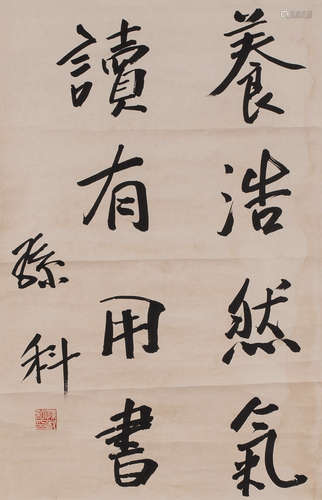 養浩然氣
讀有用書
孫科